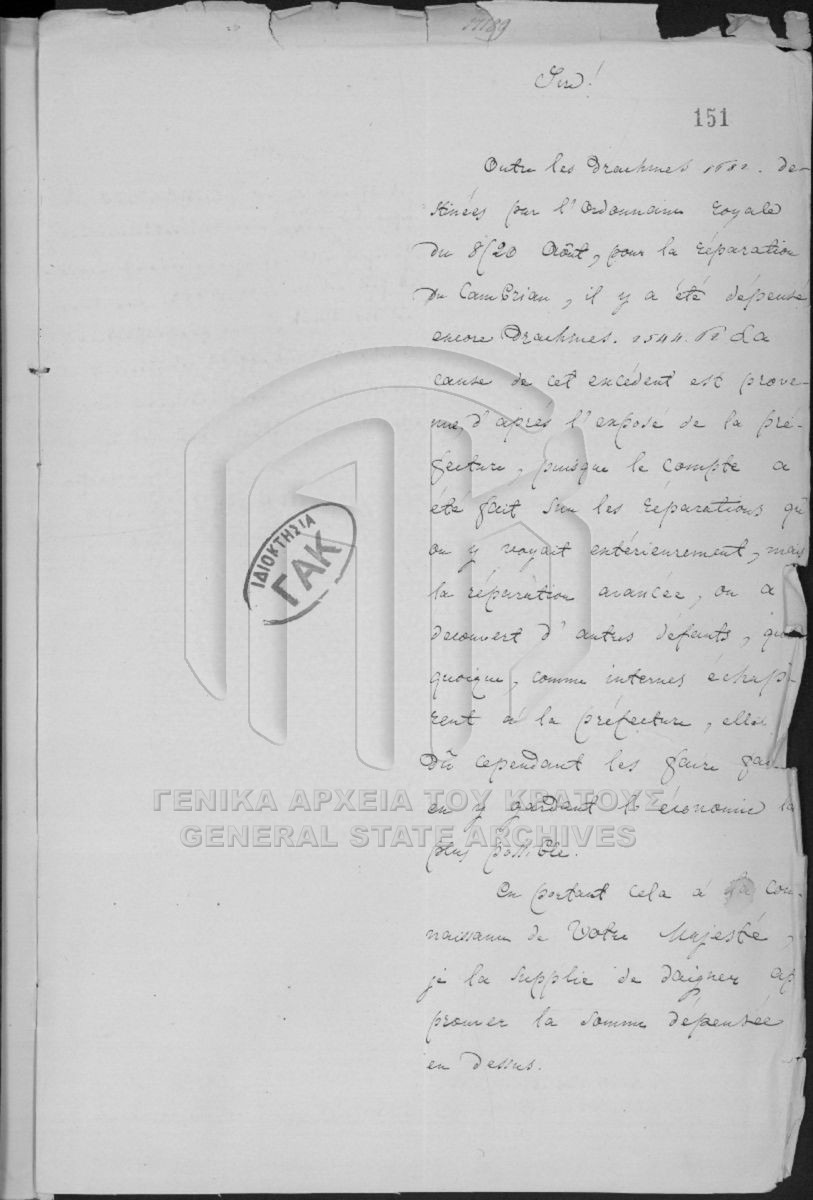 Sire!
151
Outre les Drachmes des-
tinées par l'Ordonnance royale
du 8/20 Août, pour la réparation
du Cambrian, il y a été dépensé
encore Drachmes. La
cause de cet excédent est prove-
nue, d'après l'exposé de la pré-
fecture, puisque le compte a
été fait sur les réparations qu'
on y voyait extérieurement, mais
la réparation avancée, on a
decouvert d'autres défauts,
quoique, comme internes échap-
rent à la préfecture, elle
dû cependant les faire
en y gardant l'économie la
plus possible.
En portant cela à la con-
naissance de Votre Majesté,
je la supplie de daigner ap
prouver la somme dépensée
en dessus.
ΙΔΙΟΚΤΗΣΙΑ
ΓΑΚ
ΓΕΝΙΚΑ ΑΡΧΕΙΑ ΤΟΥ ΚΡΑΤΟΥΣ
GENERAL STATE ARCHIVES